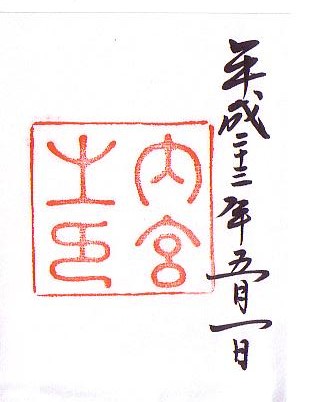 平成二十二年五月一日
内宮
之印